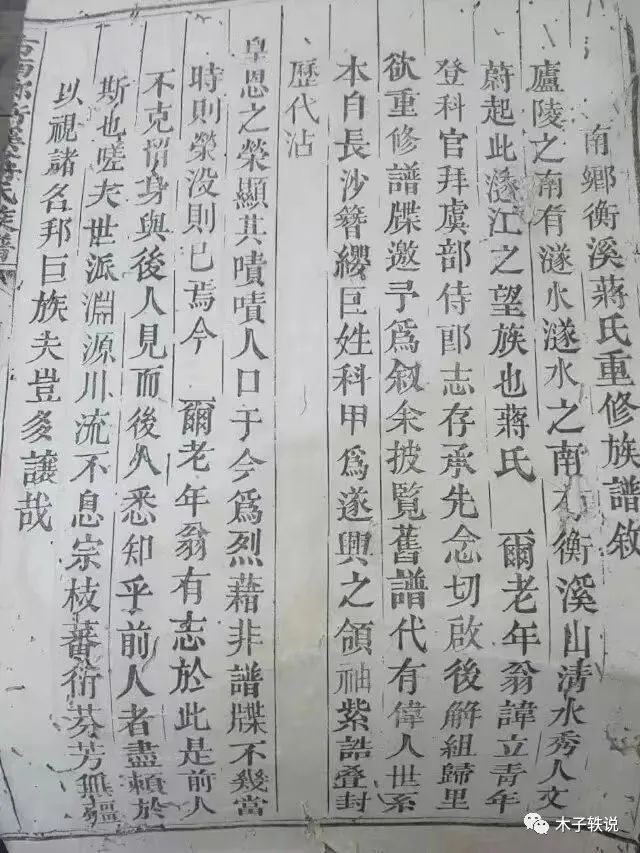 南鄉衡溪蔣氏重修族譜敘
廬陵之南有遂水遂水之南有衡溪山清水秀人文
蔚起此遂江之望族也蔣氏 爾老年翁諱立青年
登科官拜虞部侍郎志存承先念切啟後解組歸里
欲重修譜牒邀予為叙余披覧舊譜代有偉人世系
本自長沙簪纓巨姓科甲為遂興之領袖紫誥叠封
歷代沾
皇恩之榮顯其嘖嘖人口于今為烈藉非譜牒不幾當
時則榮没則已焉今 爾老年翁有志於此是前人
不克留身與後人見而後人悉知乎前人者盡頼於
斯也嗟夫世派淵源川流不息宗枝蕃衍芬芳無疆
以視諸名邦巨族夫豈多讓哉
氏族譜
木子轶说